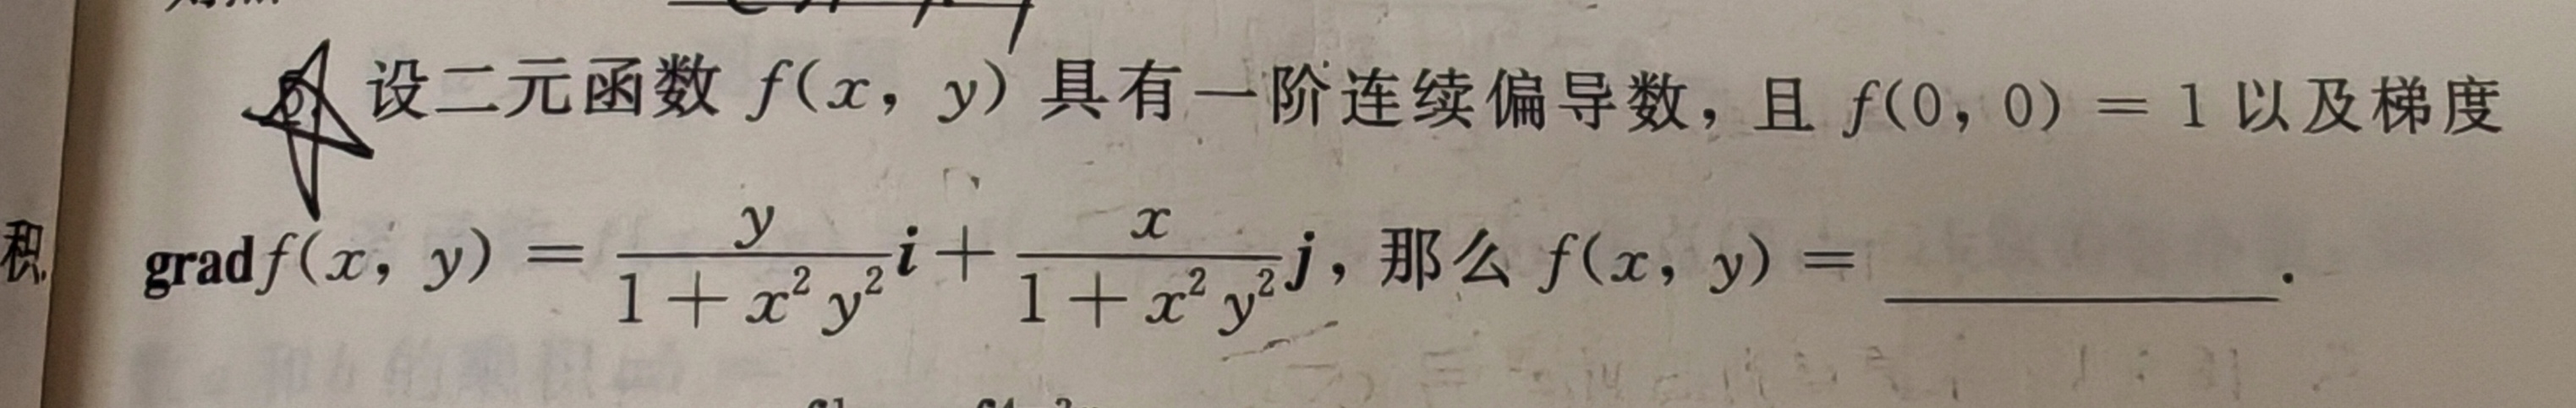 设二元函数 f(x, y) 具有一阶连续偏导数，且 f(0, 0) = 1 以及梯度
积
gradf(x, y) = \frac{y}{1+x^2y^2}i + \frac{x}{1+x^2y^2}j，那么 f(x, y) = ________.